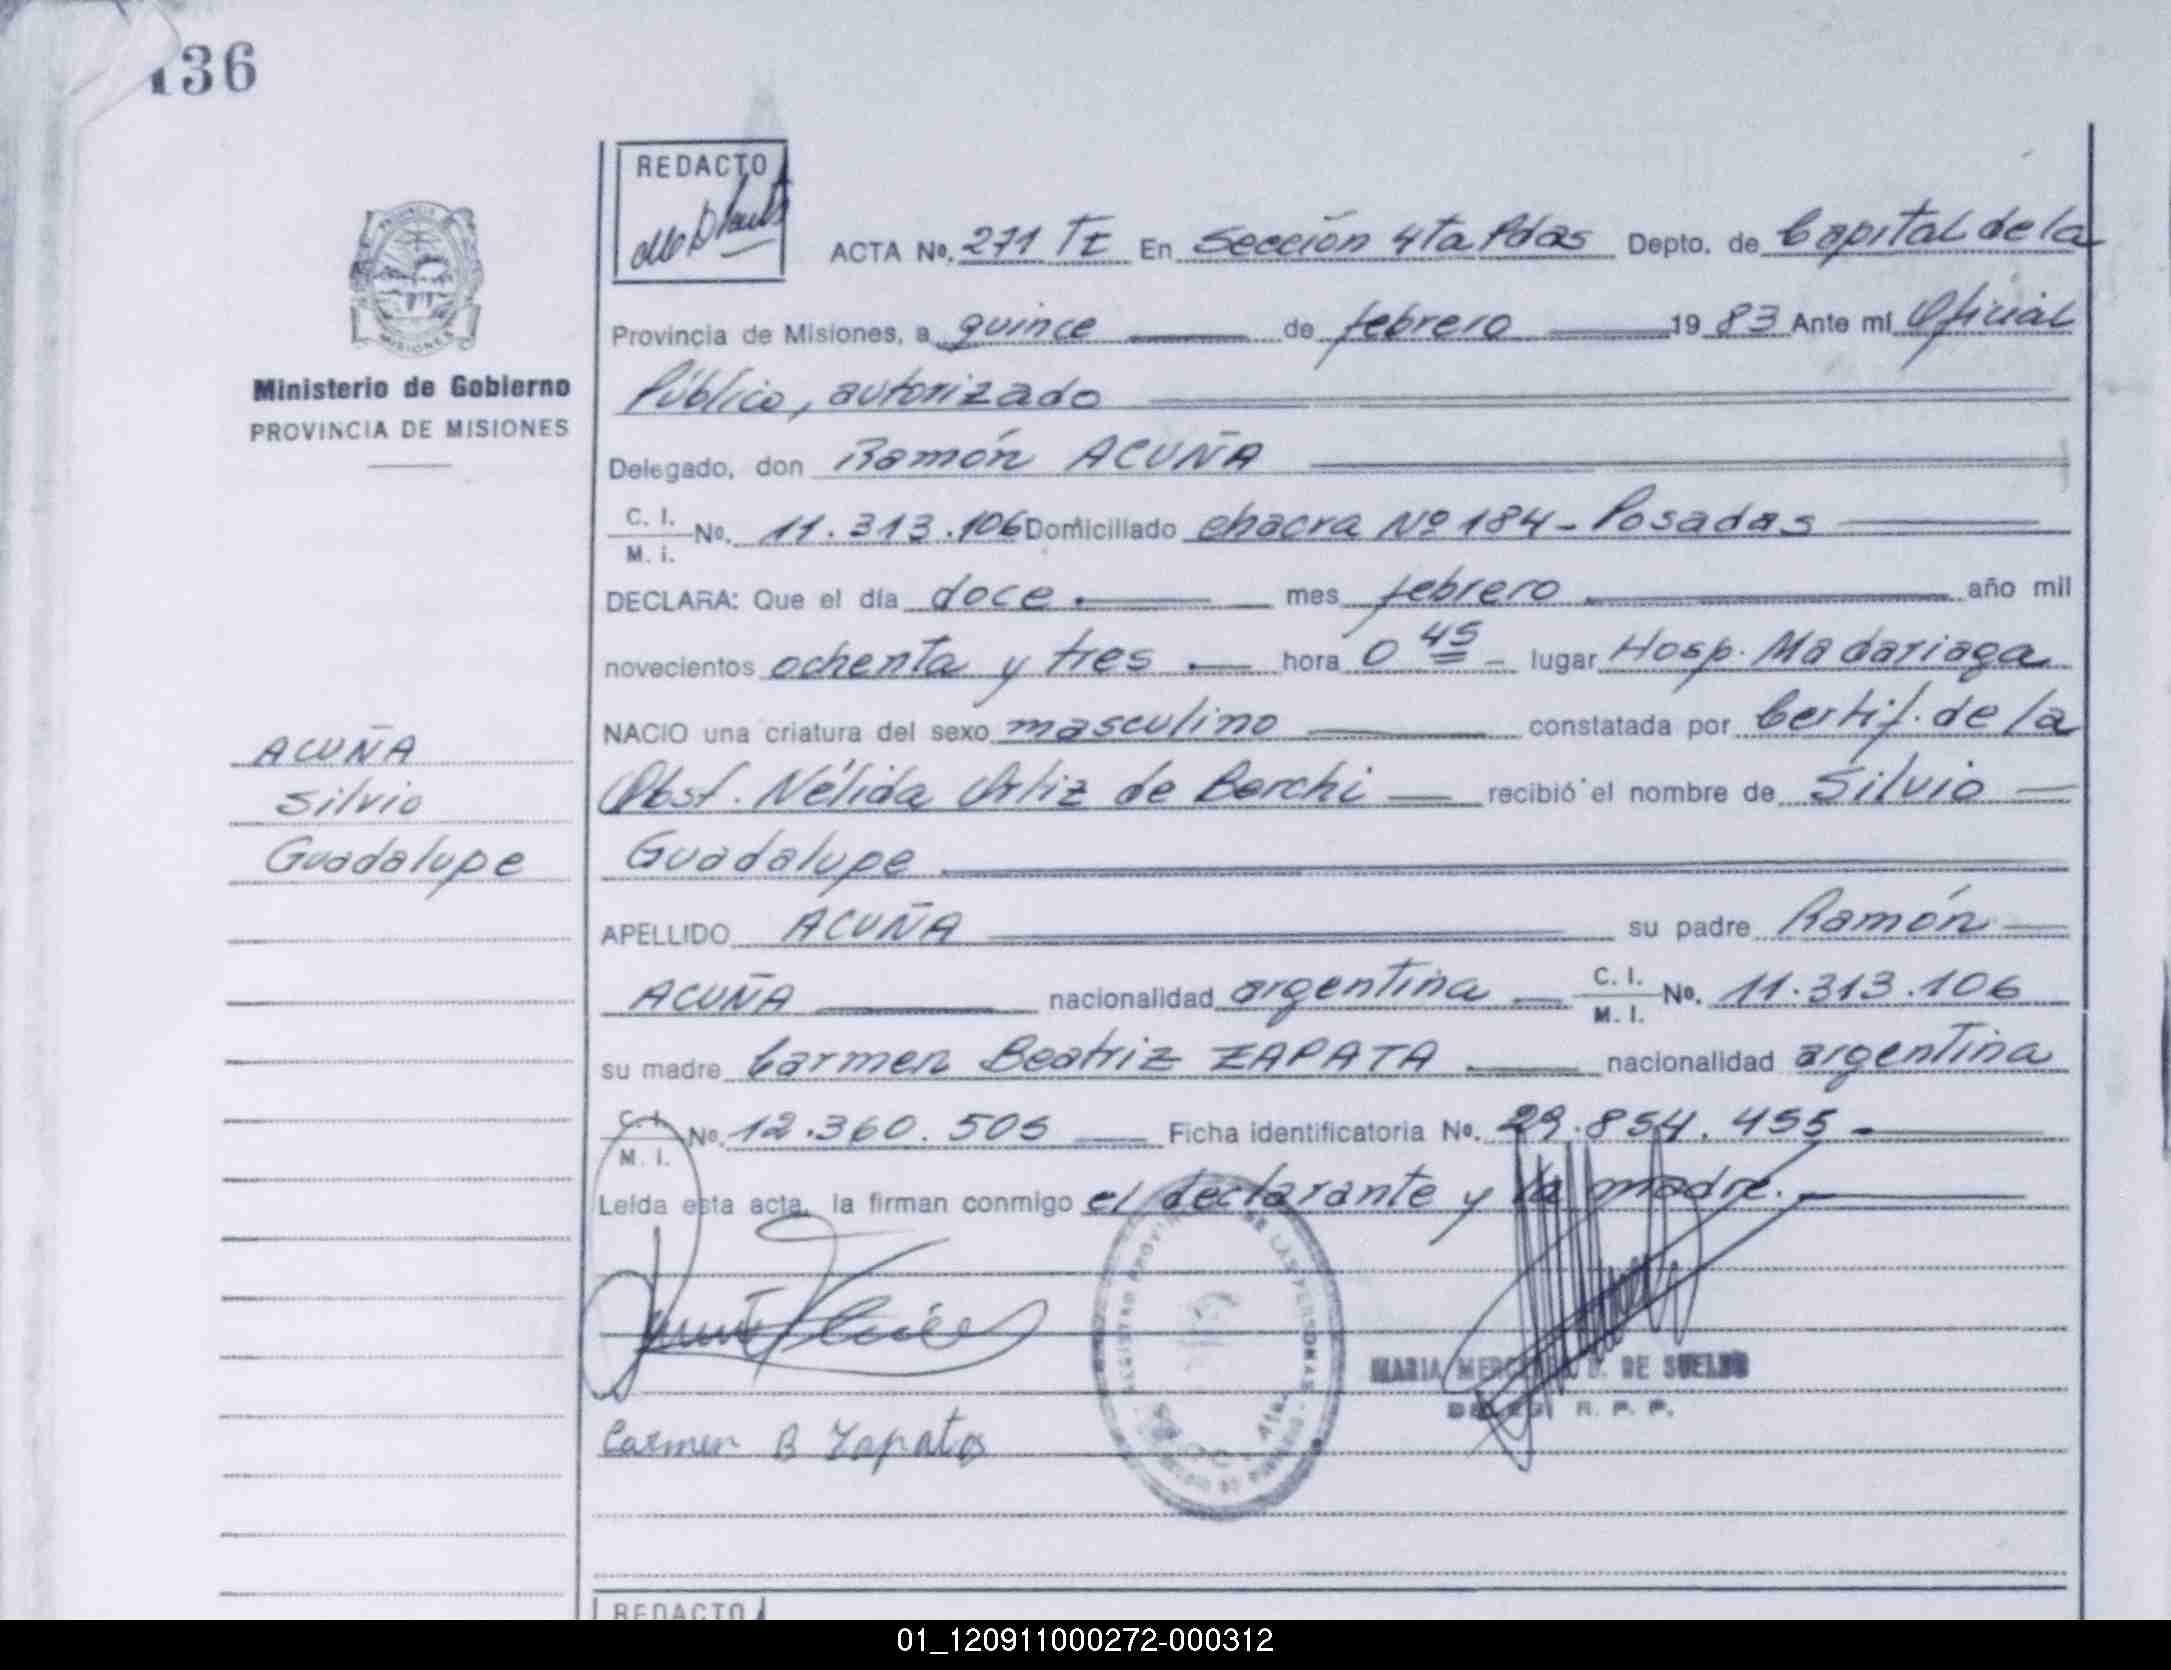 136
REDACTO
ACTA No. 271 TI En Sección 4ta Pdas Depto. de Capital de la
Provincia de Misiones, a quince de febrero 1983 Ante mí Oficial
Público, autorizado
Delegado, don Ramón ACUÑA
C. I.
M. I. No. 11.313.106 Domiciliado chacra Nº 184 - Posadas
DECLARA: Que el día doce mes febrero año mil
novecientos ochenta y tres hora 0 45 lugar Hosp. Madariaga
NACIO una criatura del sexo masculino constatada por Certif. de la
Obst. Nélida Ortiz de Berchi recibió el nombre de Silvio
Guadalupe
APELLIDO ACUÑA su padre Ramón
ACUÑA nacionalidad argentina C. I.
M. I. No. 11.313.106
su madre Carmen Beatriz ZAPATA nacionalidad argentina
C. I.
M. I. No. 12.360.505 Ficha identificatoria No. 29.854.455
Leída esta acta, la firman conmigo el declarante y la madre.
Carmen B Zapata
DE SUELDO
R. P. P.
PROVINCIA
MISIONES
Ministerio de Gobierno
PROVINCIA DE MISIONES
ACUÑA
Silvio
Guadalupe
REDACTO
01_120911000272-000312